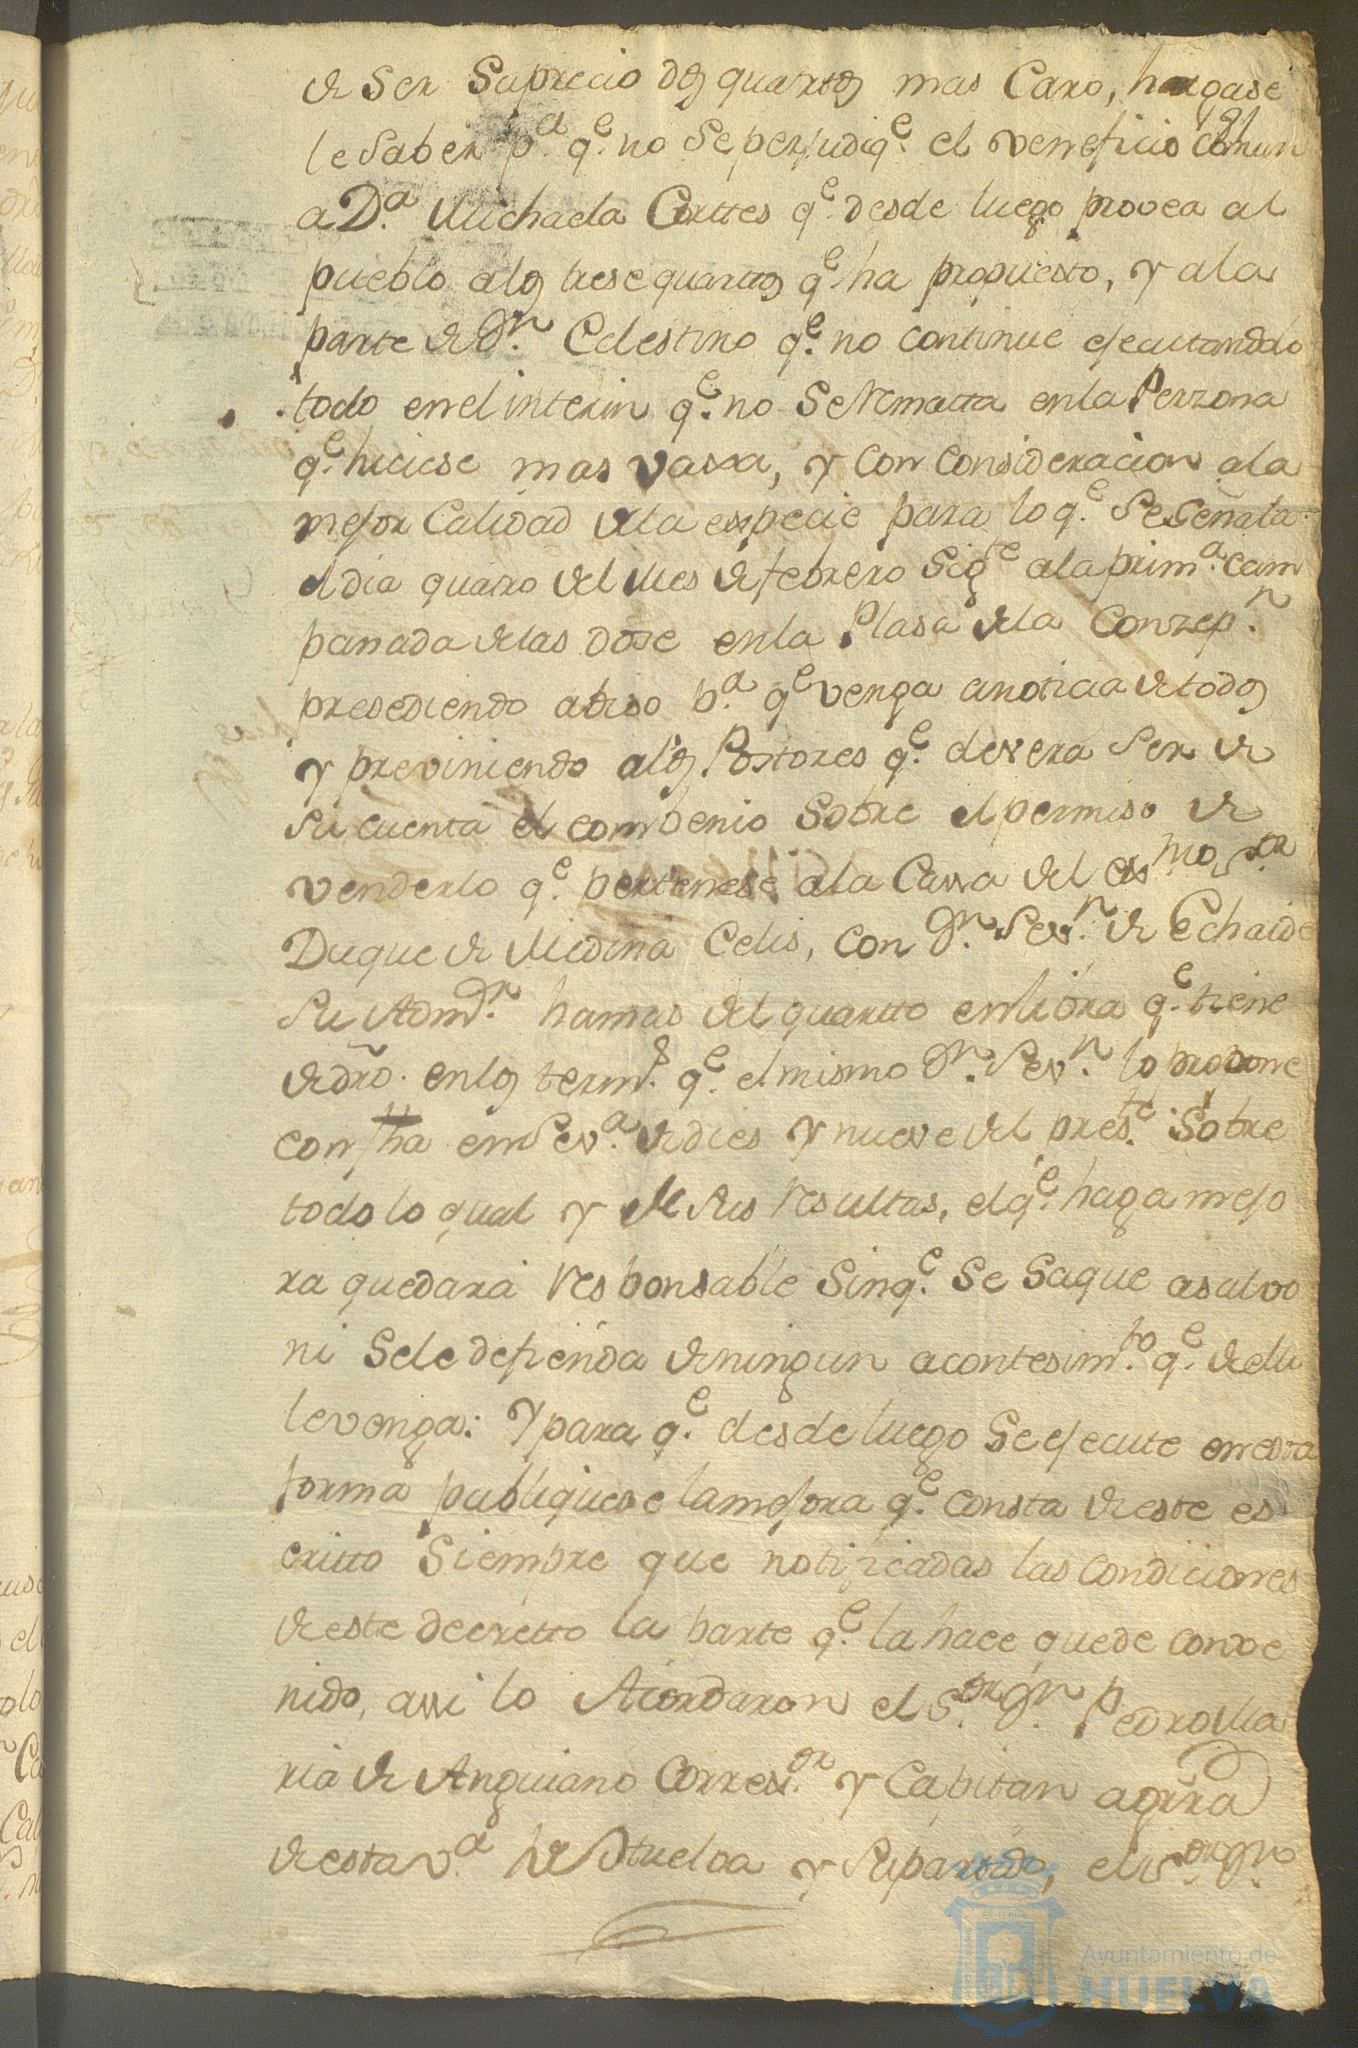 de Ser Suprecio dos quartos mas Caro, hagase
191
le Saber p.ª q.e no Se perjudiq.e el veneficio comun
a D.ª Michaela Corttes q.e desde luego provea al
pueblo alos trese quarttos q.e ha propuesto, y ala
parte de D.n Celestino q.e no continue ejecutandolo
todo en el interin q.e no Se Rematta en la Perzona
q.e hiciese mas vaxa, y con consideracion ala
mejor Calidad dela expecie para lo q.e Se Señala
el dia quatro del Mes de febrero Sig.te ala prim.ª cam
panada delas dose en la Plasa dela Conzep.n
presediendo abiso p.ª q.e venga anoticia de todos
y previniendo alos Postores q.e devera Ser de
su cuenta el combenio Sobre el permiso de
venderlo q.e pertenese ala Cassa del ex.mo S.or
Duque de Medina Celis, con D.n Sev.n de Echaide
su Adm.or hamas del quartto en libra q.e tiene
de dro. en los term.s q.e el mismo D.n Sev.n lo propone
con fha en Sev.ª de dies y nueve del pres.te Sobre
todo lo qual y de sus resultas, el q.e haga mejo
ra quedará responsable Sinq.e Se Saque asalvo
ni Sele defienda de ningun acontesim.to q.e de ello
le venga: Y para q.e desde luego Se ejecute en esta
forma publiquese la mejora q.e consta de este es
critto Siempre que notificadas las condiciones
de este decretto la parte q.e la hace quede conve
nido, assi lo Acordaron el S.or D.n Pedro Ma
ria de Anguiano Correx.or y Capitan aGrra
de esta v.ª de Huelva y Supartido, el S.or D.n
Ayuntamiento de
HUELVA